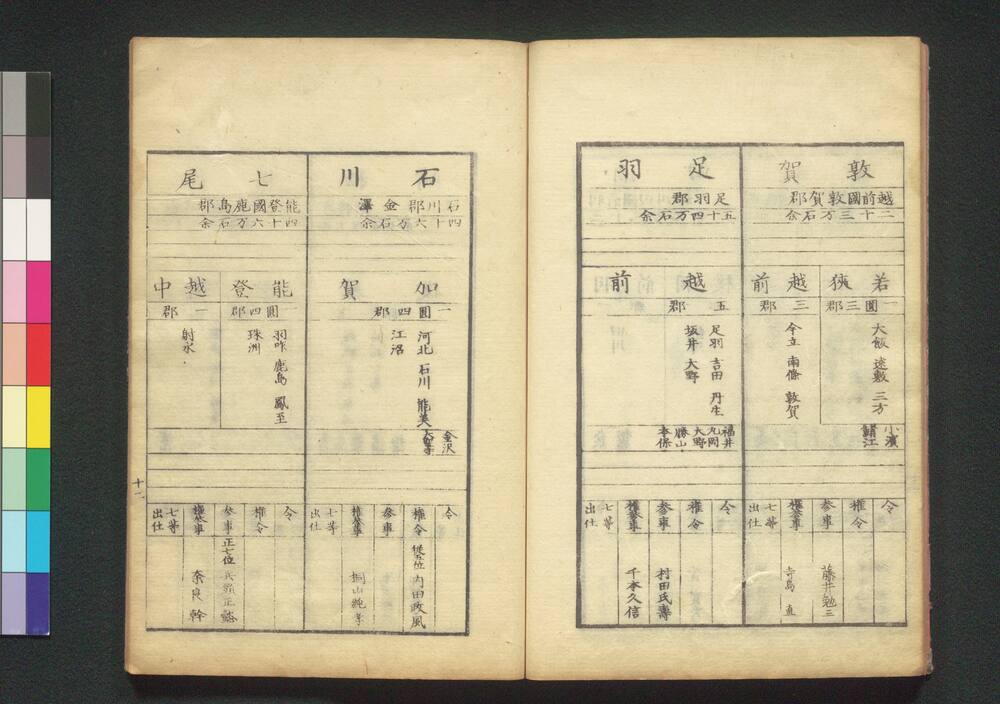 敦賀
越前國敦賀郡
二十三万石余
若狹
一圓三郡
大飯 遠敷 三方
越前
三郡
今立 南條 敦賀
小濱
鯖江
令
権令
参事
藤井勉三
権参事
寺島 直
七等出仕
足羽
足羽郡
五十四万石余
越前
五郡
足羽 吉田 丹生
坂井 大野
福井
丸岡
大野
勝山
本保
令
権令
参事
村田氏壽
権参事
千本久信
七等出仕
石川
石川郡金澤
四十六万石余
加賀
一圓四郡
河北 石川 能美
江沼
金沢
大聖寺
令
権令
従五位 内田政風
参事
権参事
桐山純孝
七等出仕
七尾
能登國鹿島郡
四十六万石余
能登
一圓四郡
羽咋 鹿島 鳳至
珠洲
越中
一郡
射水
令
権令
参事
正七位
権参事
奈良 幹
七等出仕
十一